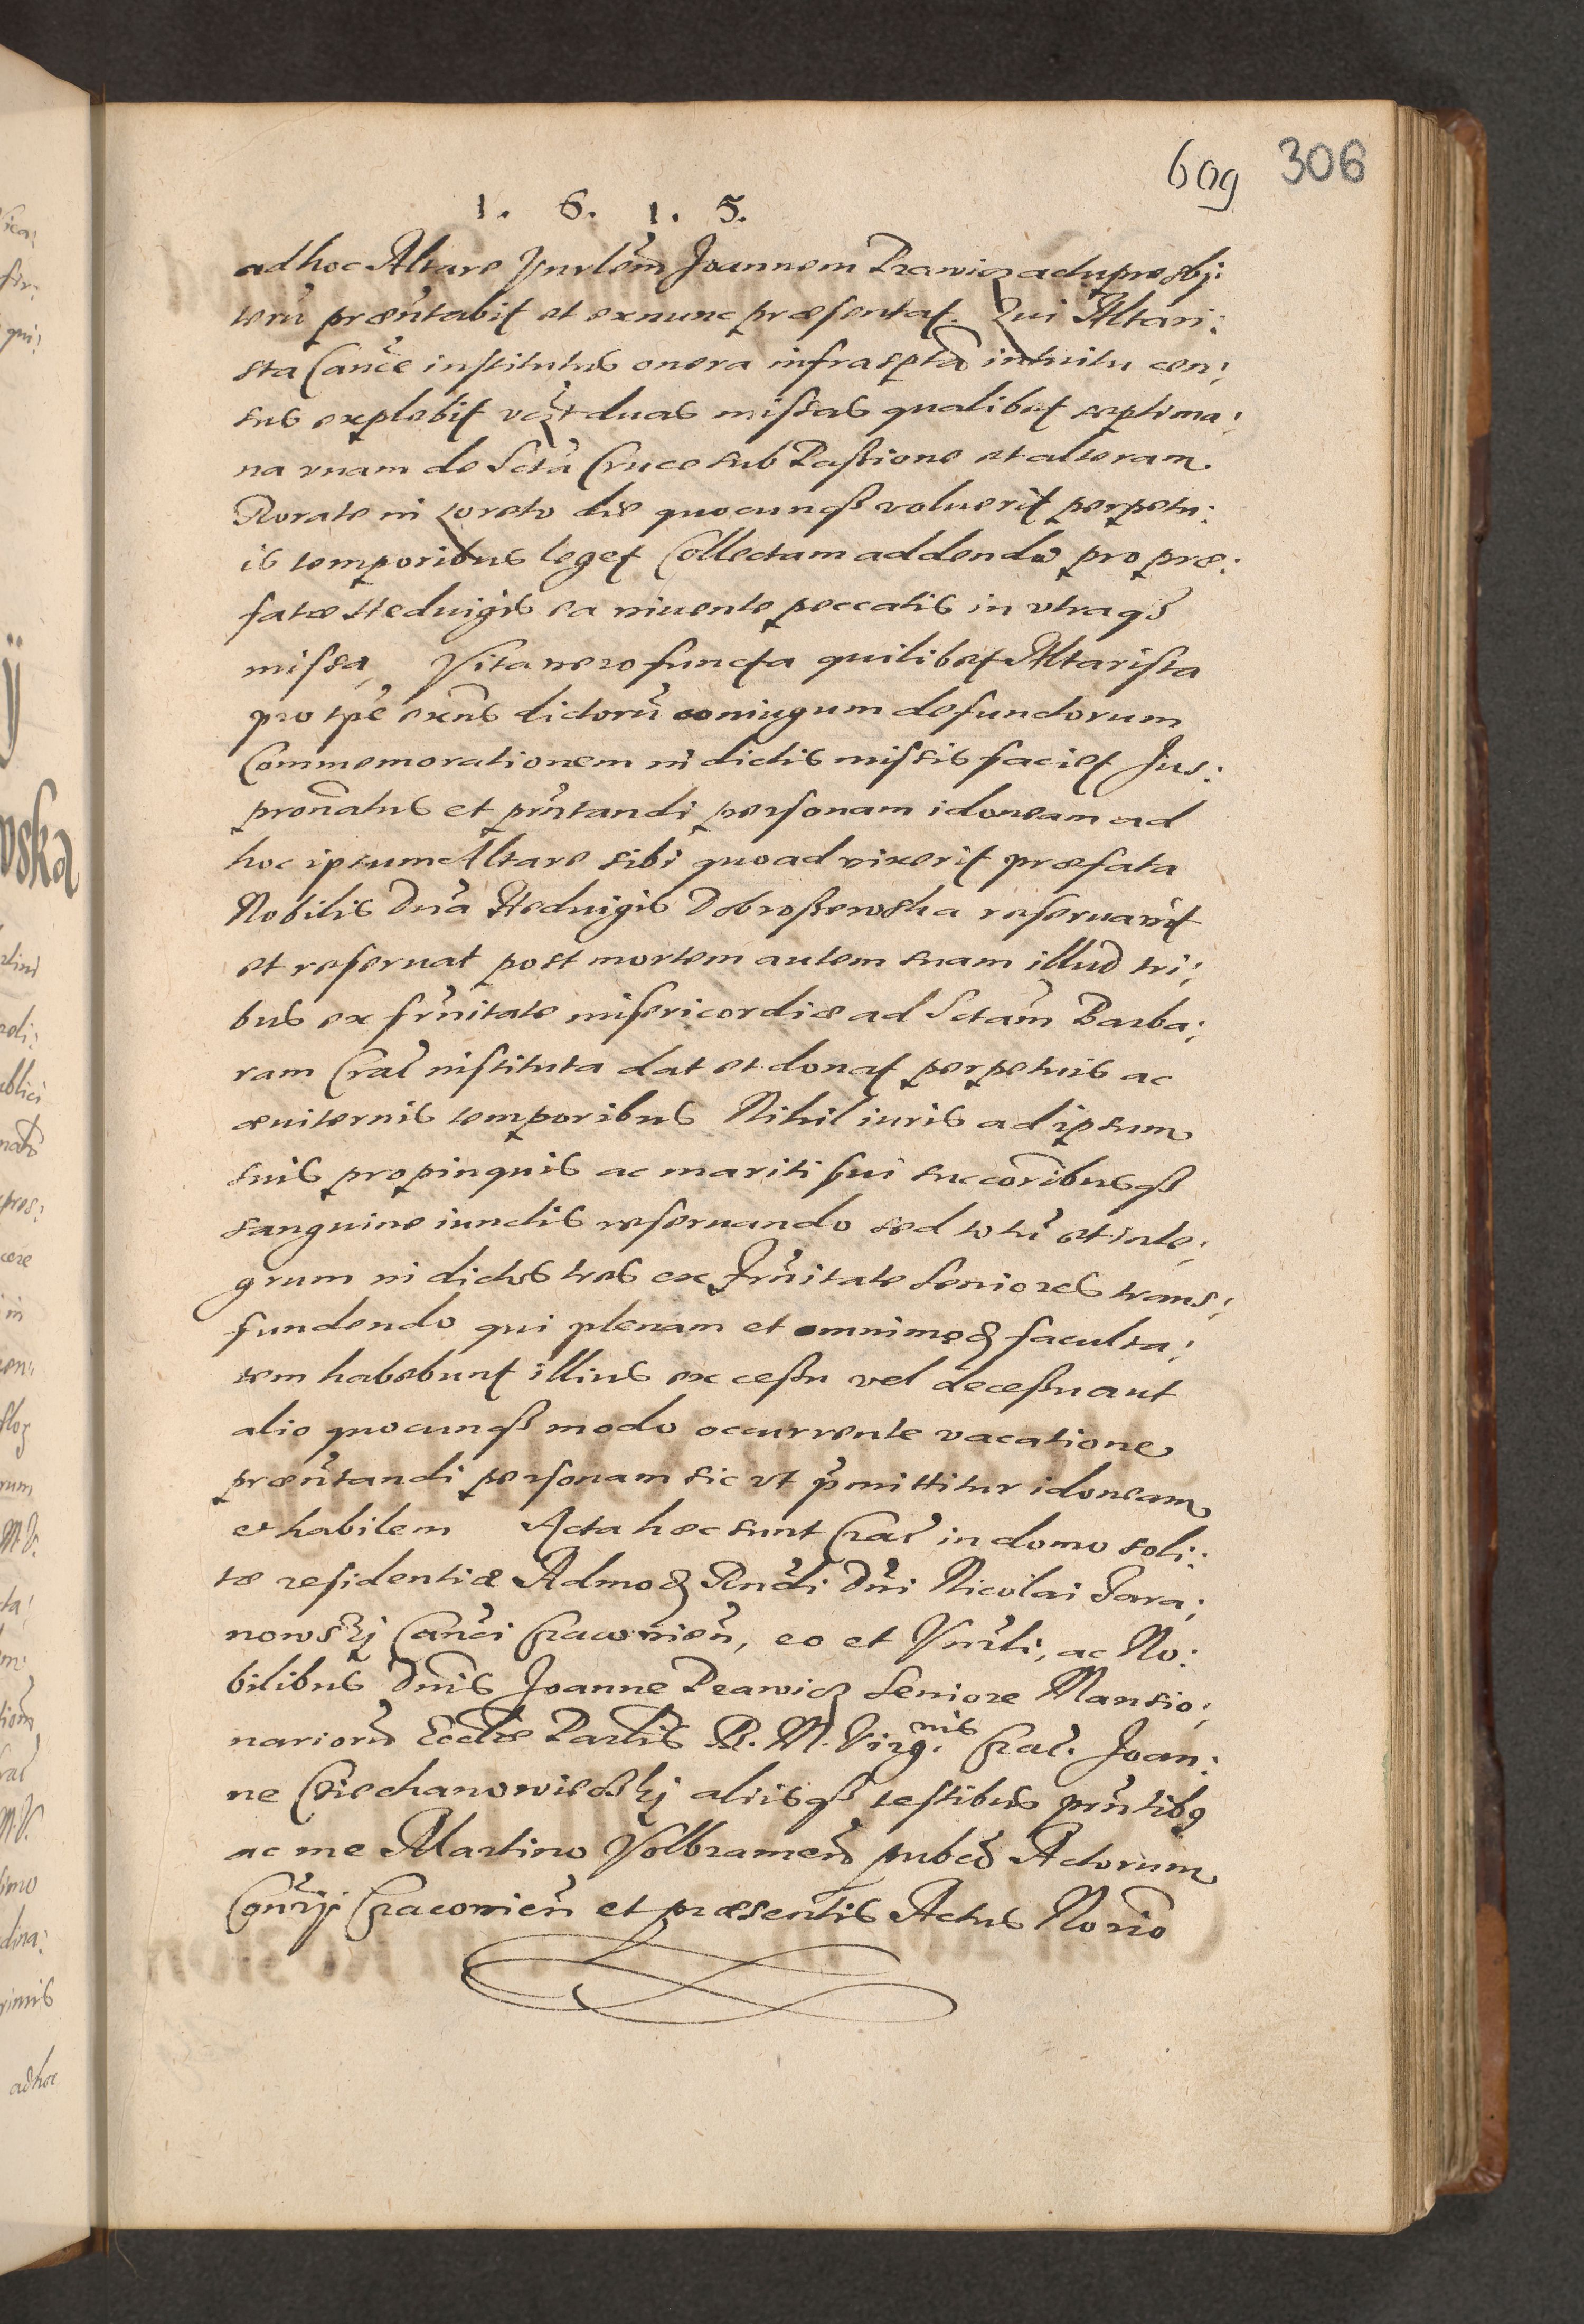 609 306
1. 6. 1. 5.
ad hoc Altare Vnrlem̃ Joannem Prawicz actu presbj:
terũ præñtabit et exnunc præsentat. Qui Altari:
sta Canc̃e institutus onera infrascpta intuitu cen:
sus explebit vcz̃t duas missas qualibet septima:
na vnam de Sctã Cruce sub Passione et alteram
Rorate in toreto die quocunqȝ voluerit perpetu:
is temporibus leget Collectam addendo pro præ:
fatæ Heduigis ea viuente peccatis in vtraqȝ
missa, Vita vero functa quilibet Altarista
pro tp̃e exñs dictorũ coniugum defunctorum
Commemorationem in dictis missis faciet Jus:
pronatus et prñtandi personam idoneam ad
hoc ipsum Altare sibi quoad vixerit præfata
Nobilis Dña Heduigis Dobroszewska reseruauit
et reseruat post mortem autem suam illud tri:
bus ex frñitate misericordiæ ad Sctam̃ Barba:
ram Crac̃ instituta dat et donat perpetuis ac
æuiternis temporibus Nihil iuris ad ipsum
suis propinquis ac mariti sui succoribusqȝ
sanguine iunctis reseruando sed totũ et inte:
grum in dictos tres ex frñitate Seniores trans:
fundendo qui plenam et omnimoȝ faculta:
tem habebunt illius ex cessu vel decessu aut
alio quocunqȝ modo occurrente vacatione
præñtandi personam sic vt p̃mittitur idoneam
et habilem Acta hæc sunt Crac̃ in domo soli:
tæ residentiæ Admoȝ Rñdi Dñi Nicolai Sara:
nowskj Canc̃i Cracouien̄, eo et Vnr̃li, ac No:
bilibus Dñis Joanne Prawicz Seniore Mansio:
nariorũ Eccl̃æ Parl̃is B. M. Virg.nis Crac̃. Joan:
ne Cziechanowieczkj aliisqȝ testibus prñtibȝ
ac me Martino Volbramen̄ pubco Actorum
Consr̃ij Cracouien̄ et præsentis Actus Norio